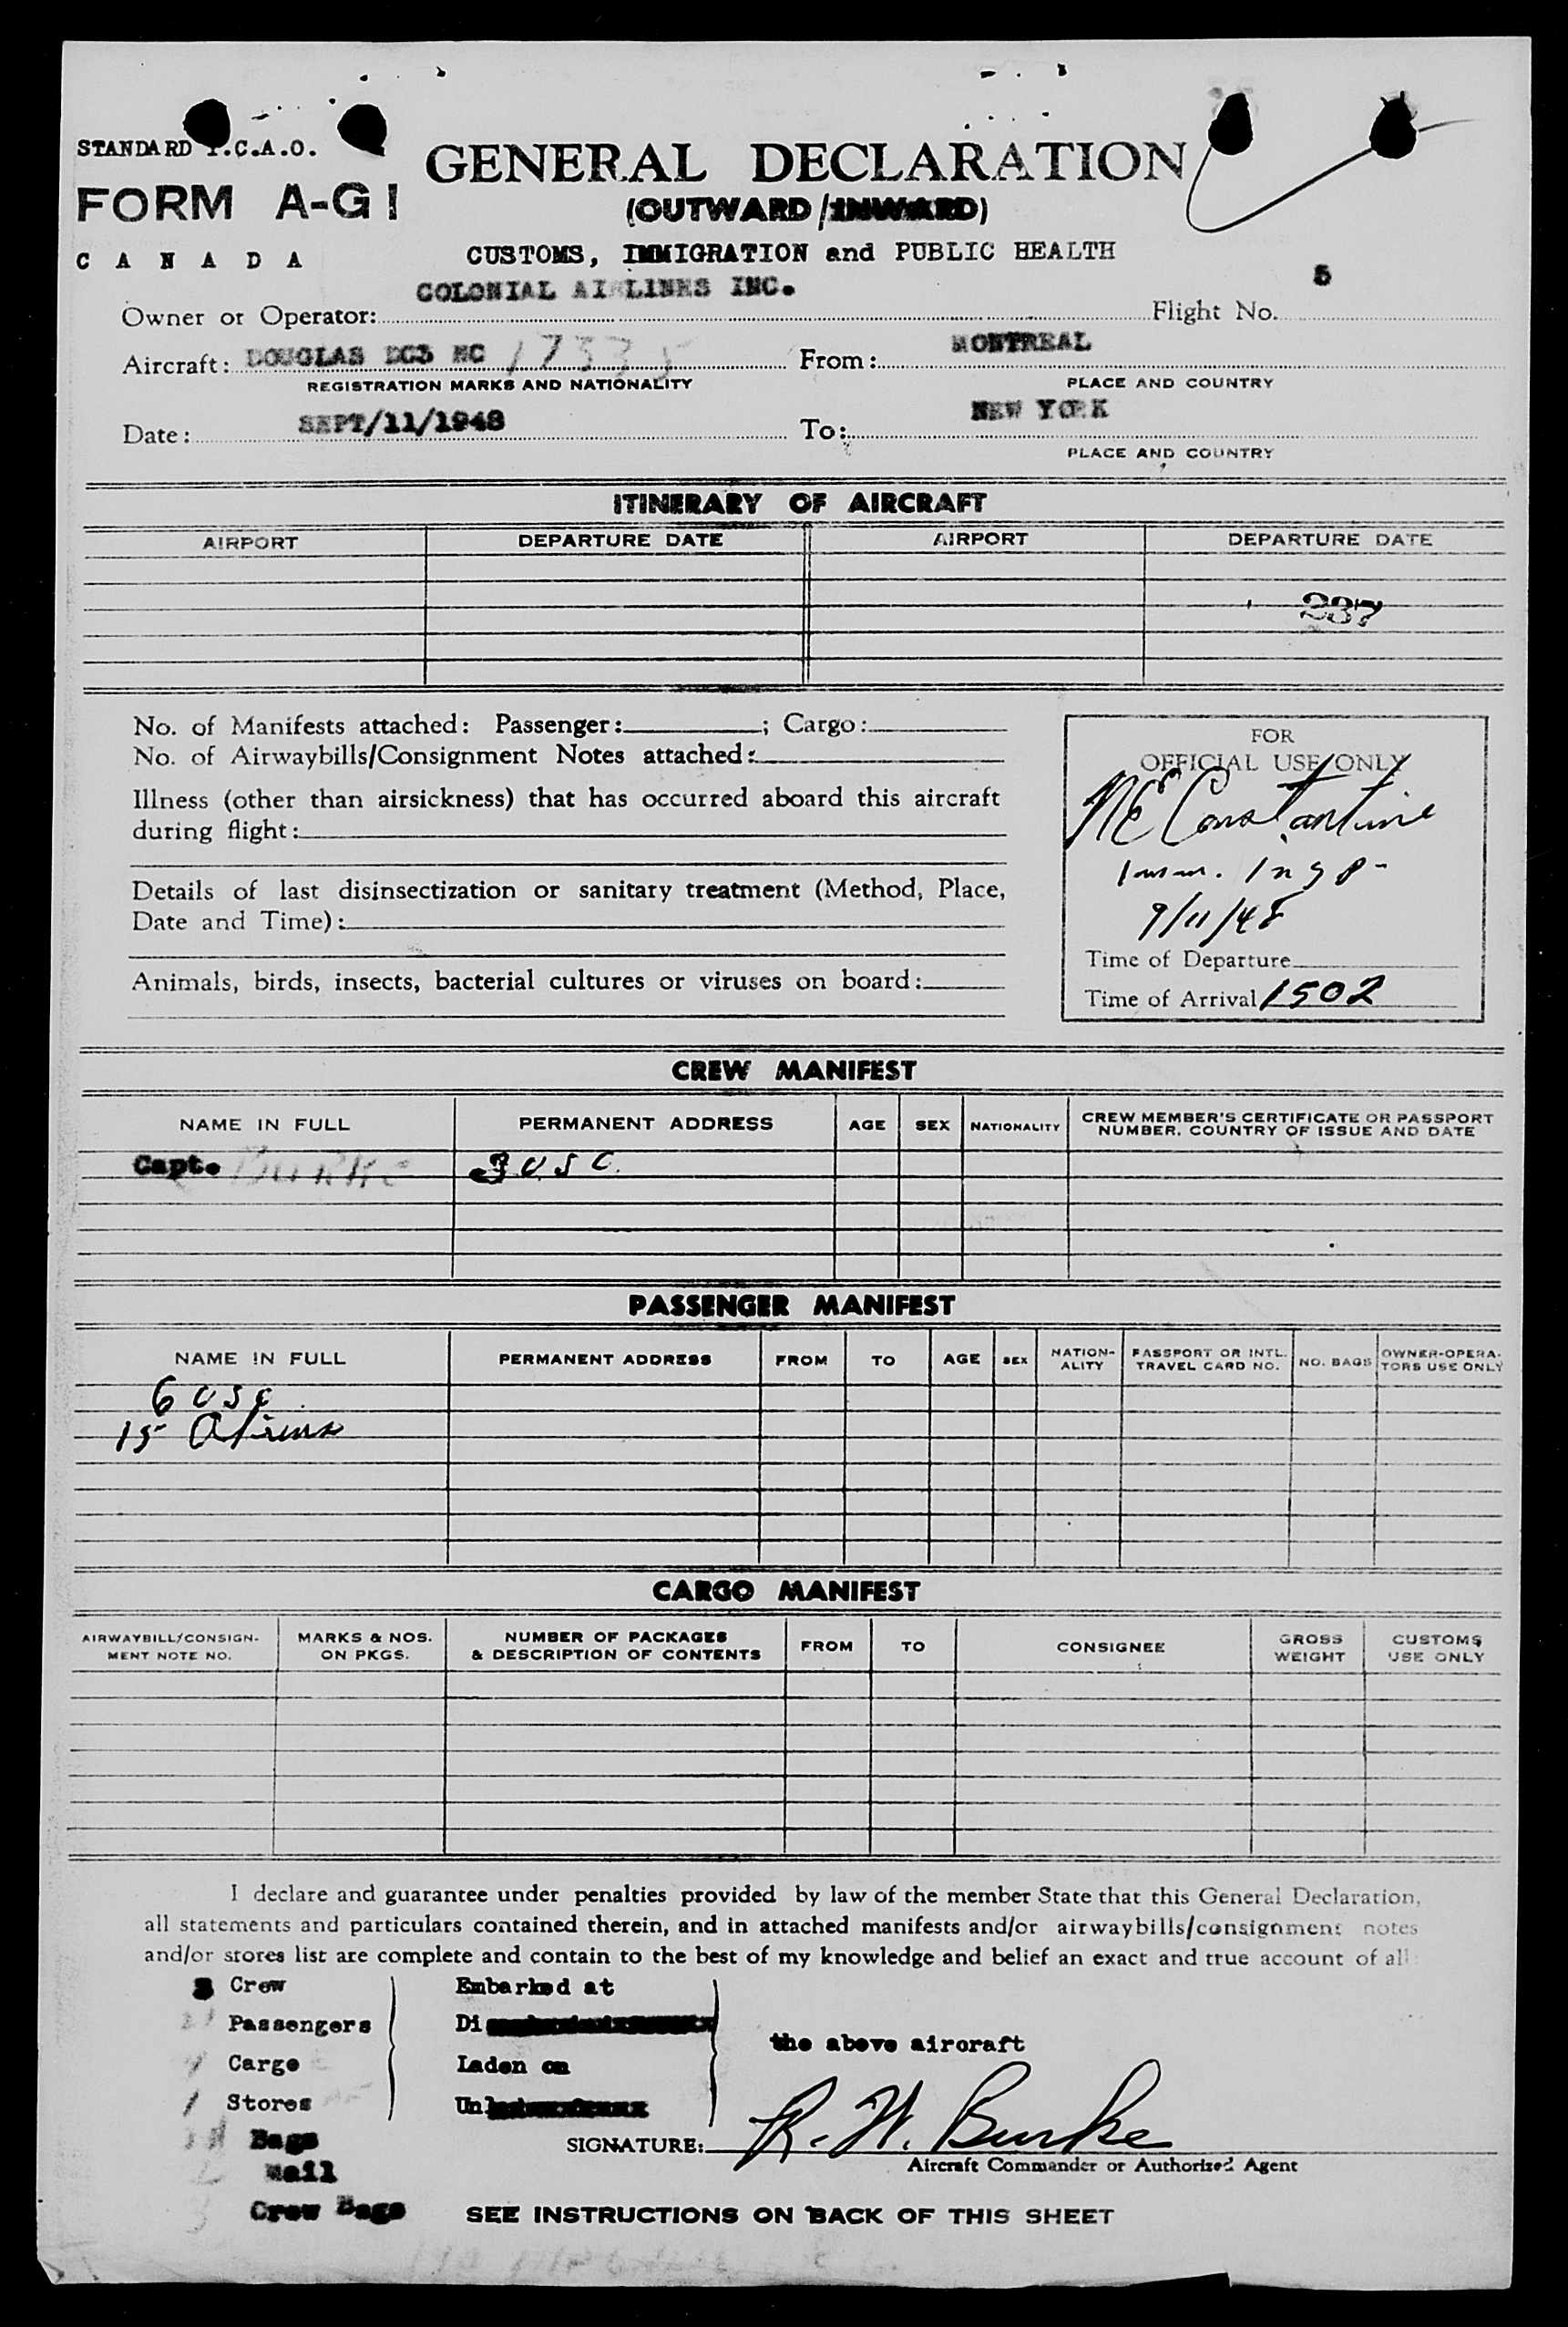 STANDARD I.C.A.O.
FORM A-G1
CANADA
GENERAL DECLARATION
(OUTWARD/INWARD)
CUSTOMS, IMMIGRATION and PUBLIC HEALTH
COLONIAL AIRLINES INC.
5
Owner or Operator: Flight No.
Aircraft: DOUGLAS DC3 NC 17335 From: MONTREAL
REGISTRATION MARKS AND NATIONALITY PLACE AND COUNTRY
Date: SEPT/11/1948 To: NEW YORK
PLACE AND COUNTRY
ITINERARY OF AIRCRAFT
AIRPORT DEPARTURE DATE AIRPORT DEPARTURE DATE
237
No. of Manifests attached: Passenger: ; Cargo:
No. of Airwaybills/Consignment Notes attached:
Illness (other than airsickness) that has occurred aboard this aircraft
during flight:
Details of last disinsectization or sanitary treatment (Method, Place,
Date and Time):
Animals, birds, insects, bacterial cultures or viruses on board:
FOR
OFFICIAL USE ONLY
NE Constantine
Imm. Insp-
9/11/48
Time of Departure
Time of Arrival 1502
CREW MANIFEST
NAME IN FULL PERMANENT ADDRESS AGE SEX NATIONALITY CREW MEMBER'S CERTIFICATE OR PASSPORT
NUMBER, COUNTRY OF ISSUE AND DATE
Capt. Burke 3 USC
PASSENGER MANIFEST
NAME IN FULL PERMANENT ADDRESS FROM TO AGE SEX NATION-
ALITY PASSPORT OR INTL.
TRAVEL CARD NO. NO. BAGS OWNER-OPERA-
TORS USE ONLY
6 USC
15 Aliens
CARGO MANIFEST
AIRWAYBILL/CONSIGN-
MENT NOTE NO. MARKS & NOS.
ON PKGS. NUMBER OF PACKAGES
& DESCRIPTION OF CONTENTS FROM TO CONSIGNEE GROSS
WEIGHT CUSTOMS
USE ONLY
I declare and guarantee under penalties provided by law of the member State that this General Declaration,
all statements and particulars contained therein, and in attached manifests and/or airwaybills/consignment notes
and/or stores list are complete and contain to the best of my knowledge and belief an exact and true account of all
3 Crew Embarked at
21 Passengers Di
the above aircraft
Cargo Laden on
1 Stores Un
Bags
SIGNATURE: R. W. Burke
Mail
Aircraft Commander or Authorized Agent
3 Crew Bags
SEE INSTRUCTIONS ON BACK OF THIS SHEET